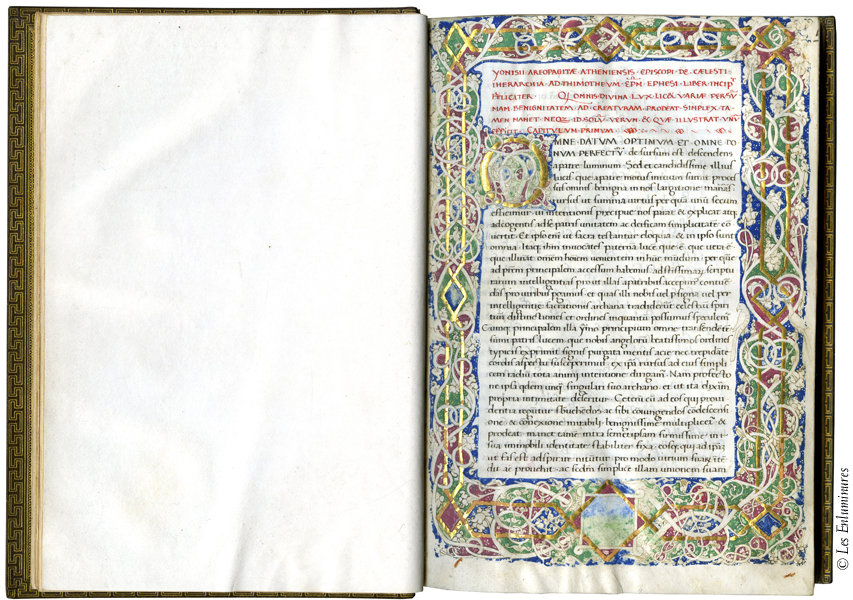 YONISII AREOPAGITÆ ATHENIENSIS EPISCOPI DE CÆLESTI
IHERARCHIA AD THIMOTHEVM EPM EPHESI LIBER INCIPT
FELICITER OMNIS DIVINA LVX LICET VARIÆ PERSV
NAM BENIGNITATEM AD CREATVRAM PRODEAT SIMPLEX TA
MEN MANET NEQ ID SOLV VERVM & QVÆ ILLVSTRAT VNV
EFFICIT CAPITVLVM PRIMVM
MNE DATVM OPTIMVM ET OMNE DO
NVM PERFECTV desursum est descendens
a patre luminum Sed et candidissime illius
lucis que a patre motus incutum sumit proces
sus omnis benigna in nos largitione manans
rursus ut summa uirtus per quā unū secum
efficimur ui intentionis precipue nos parat & explicat atq
ad cogentis ad se patris unitatem ac deificam simplicitatē cō
uertit Et ipso enī ut sacra testantur eloquia & in ipso sunt
omnia Itaq ihm inuocātes paternā lucē que ē que uera ē
que illuminat omnem hominem uenientem in hūc mūdum per quē
ad patrem principalem accessum habemus ad sctissimarum scriptu
rarum intelligentias prout illas a patribus accepimus contuē
das pro uiribus pergamus et quas illi nobis uel p signa uel per
intelligentie sacrationis archana tradiderūt celestium spiri
tuū distinctiones et ordines inquantū possumus speculemur
Cumq principalem illā ymo principium omne transcendēte
sumi patris lucem que nobis angelorū beatissimos ordines
typicis exprimit signis purgata mentis acie nec trepidāte
cordis aspectu susceperimus ex ipsa rursus ad eius simpli
cem radiū tota animi intentione dirigamur Nam profecto
ne ipsa qdem unq singulari suo archano et ut ita dixerim
propria intimitate deseritur Ceterū cū ad eos qui proui
dentia reguntur sbuehēdos ac sibi coniungendos condescensi
one & conexione mirabili benignissime multiplicetur &
prodeat manet tamē intra semetipsam firmissime in
sua immobili identitate stabiliter fixa eosq qui ad ipsā
ut fas est adspirare nitūtur pro modo uirium suarū tē
dit ac prouehit ac sedm simplicē illam unionem suam
© Les Enluminures